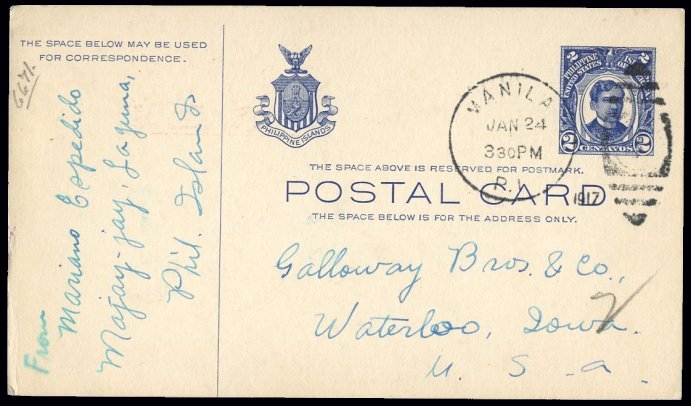 THE SPACE BELOW MAY BE USED
FOR CORRESPONDENCE.
6671.
From
Mariano Espedido
Majay-jay, Laguna,
Phil. Islands
PHILIPPINE ISLANDS
2 2
PHILIPPINE ISL'DS
UNITED STATES OF
2 CENTAVOS 2
MANILA
JAN 24
330PM
P.I.
1917
THE SPACE ABOVE IS RESERVED FOR POSTMARK.
POSTAL CARD
THE SPACE BELOW IS FOR THE ADDRESS ONLY.
Galloway Bros. & Co.,
Waterloo, Iowa.
U. S. a.